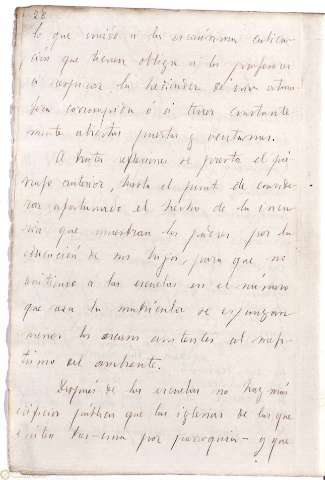 28
lo que unido a la escasísima
que tienen obliga a los profesores
a respirar la hediondez de una atmós
fera corrompida ó á tener constante
mente abiertas puertas y ventanas.
A tristes reflexiones se presta el pá
rrafo anterior, hasta el punto de conside
rar afortunado el hecho de la incu
ria que muestran los padres por la
educación de sus hijos, para que no
a las escuelas en el número
que usa la matrícula se
menos los asistentes al mefi
tismo del ambiente.
Después de las escuelas no hay más
edificios públicos que las iglesias de las que
existen por parroquia - y que